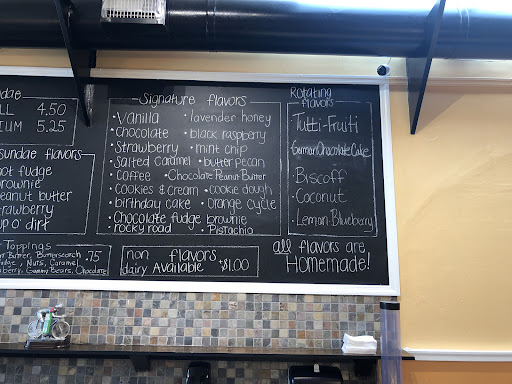 Sundae
LL 4.50
IUM 5.25
sundae flavors
ot fudge
rownie
eanut butter
trawberry
up o' dirt
Toppings
Butter, Butterscotch .75
Fudge, Nuts, Caramel
berry, Gummy Bears, Chocolate
Signature flavors
•Vanilla •lavender honey
•chocolate •black raspberry
•Strawberry •mint chip
•Salted Caramel •butter pecan
•Coffee •Chocolate Peanut Butter
•Cookies & Cream •cookie dough
•birthday cake •orange cycle
•Chocolate fudge brownie
•rocky road •Pistachio
non dairy flavors Available +$1.00
Rotating
flavors
•Tutti-Fruiti
•German Chocolate Cake
•Biscoff
•Coconut
•Lemon Blueberry
all flavors are
Homemade!